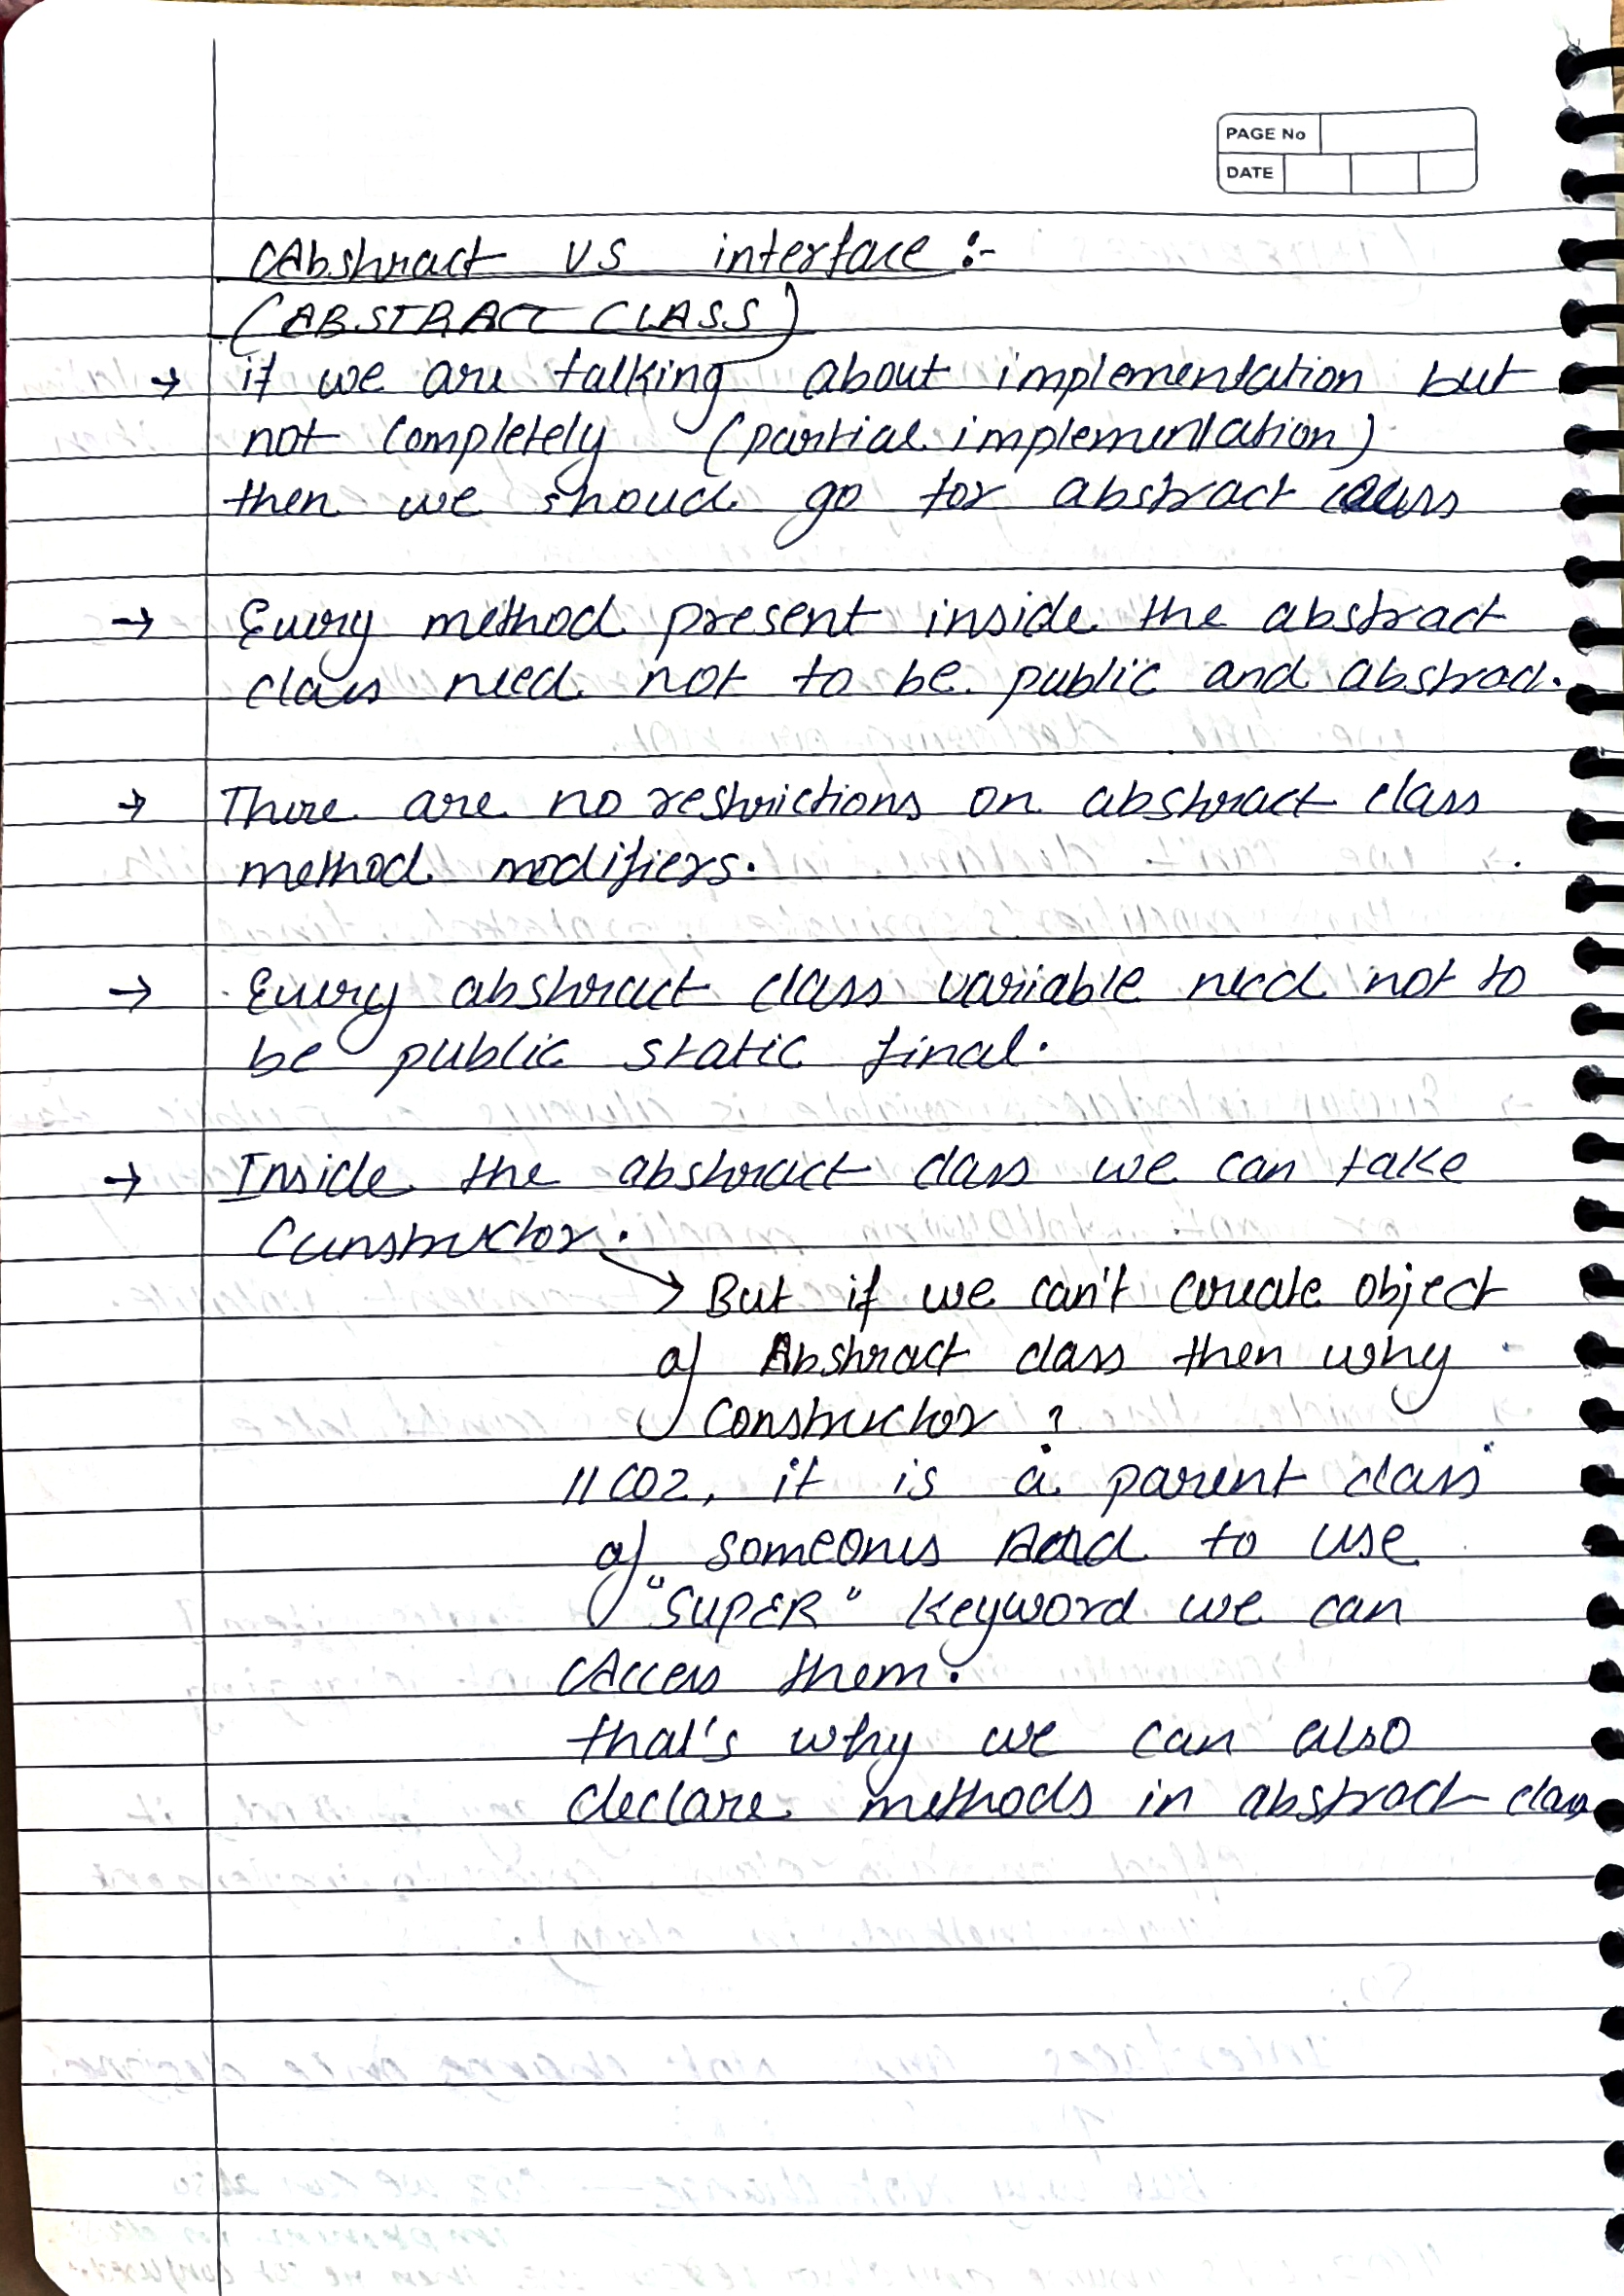 PAGE No
DATE
Abstract VS interface :-
(ABSTRACT CLASS)
→ if we are talking about implementation but
not completely (partial implementation)
then we shoud go for abstract class
→ Every method present inside the abstract
class need not to be public and abstract.
→ There are no restrictions on abstract class
method modifiers.
→ Every abstract class variable need not to
be public static final.
→ Inside the abstract class we can take
Cunstructor.
→ But if we can't create object
of Abstract class then why
constructor ?
// COZ, it is a parent class
of someones And to use
"SUPER" keyword we can
Access them.
that's why we can also
declare methods in abstract class